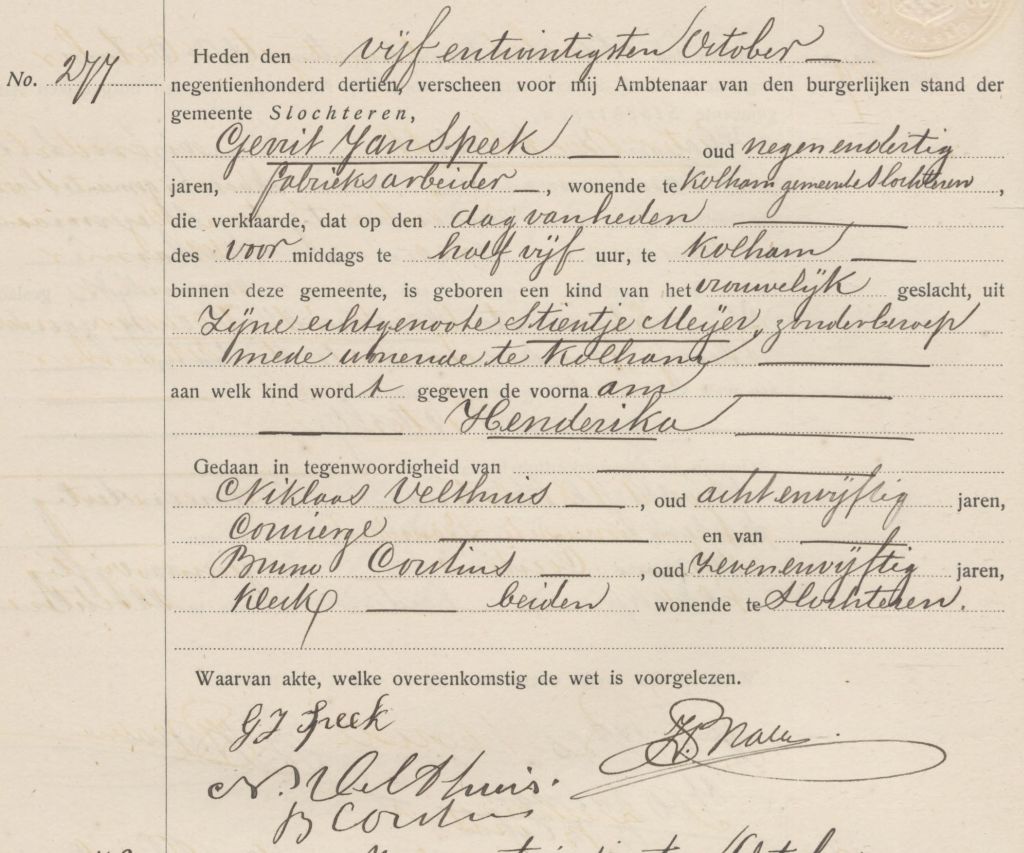 No. 277
Heden den vijf en twintigsten October
negentienhonderd dertien, verscheen voor mij Ambtenaar van den burgerlijken stand der
gemeente Slochteren,
Gerrit Jan Speek oud negen en dertig
jaren, fabrieksarbeider, wonende te Kolham gemeente Slochteren,
die verklaarde, dat op den dag van heden
des voor middags te half vijf uur, te Kolham
binnen deze gemeente, is geboren een kind van het vrouwelijk geslacht, uit
Zijne echtgenoote Stientje Meijer, zonder beroep
mede wonende te Kolham
aan welk kind wordt gegeven de voornaam
Henderika
Gedaan in tegenwoordigheid van
Niklaas Velthuis, oud acht en vijftig jaren,
Concierge en van
Bruno Contius, oud zeven en vijftig jaren,
Klerk beiden wonende te Slochteren.
Waarvan akte, welke overeenkomstig de wet is voorgelezen.
G J Speek
N. Velthuis.
B Contius
October